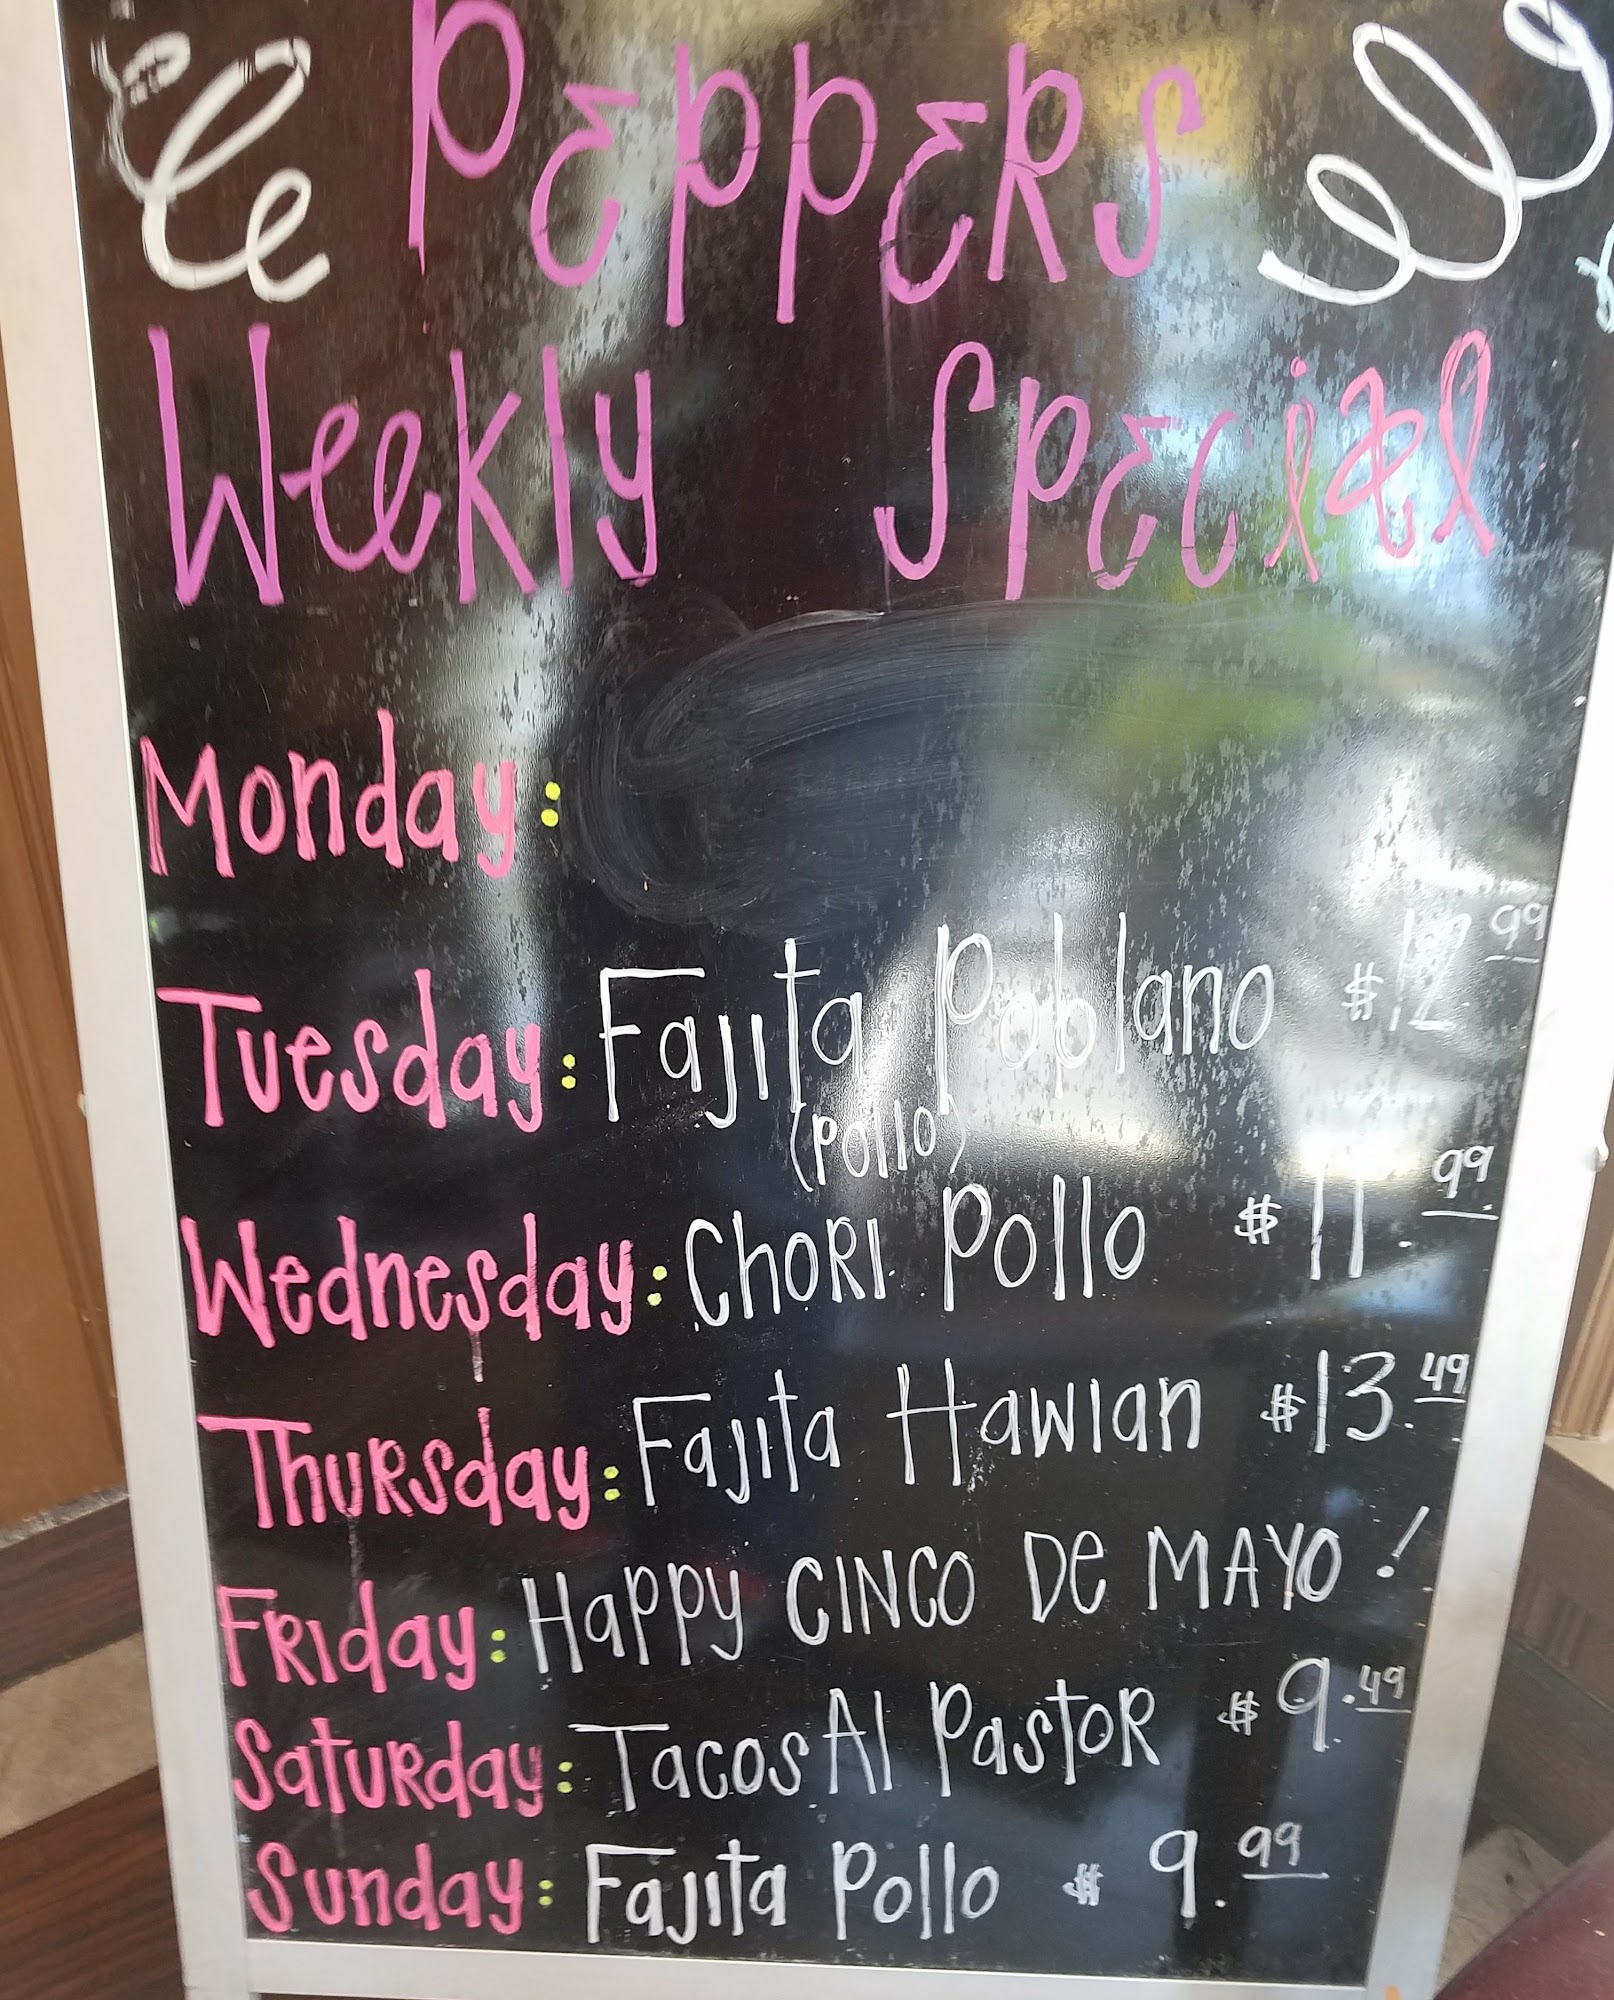 Peppers
Weekly Special
Monday:
Tuesday: Fajita Poblano $12.99
(pollo)
Wednesday: Chori Pollo $11.99
Thursday: Fajita Hawian $13.49
Friday: Happy CINCO De MAYO!
Saturday: Tacos Al Pastor $9.49
Sunday: Fajita Pollo $9.99